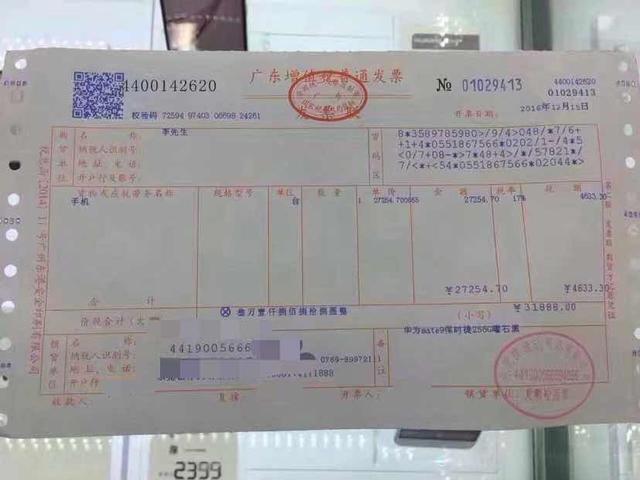 4400142620
广东增值税普通发票
№ 01029413
4400142620
01029413
校验码 72594 97403 06698 24261
开票日期: 2016年12月15日
购货单位
名 称: 李先生
纳税人识别号:
地址、电话:
开户行及账号:
密码区
8*3589785980>/9/4>048/*7/6+
+1+4*0551867566*0202/1-/4*5
<0/7+08->*7*48+4>/*/57821*/
7/<*+<54*0551867566*02044*>
货物或应税劳务名称 规格型号 单位 数量 单价 金额 税率 税额
手机 台 1 27254.700855 27254.70 17% 4633.30
合 计 ¥27254.70 ¥4633.30
价税合计(大 叁万壹仟捌佰捌拾捌圆整 (小写) ¥31888.00
销货单位
名 称:
纳税人识别号: 4419005666
地址、电话: 0769-8997211
开户行
1888
备注
华为mate9保时捷256G曜石黑
收款人: 复核: 开票人: 销货单位:
发票专用章
2399